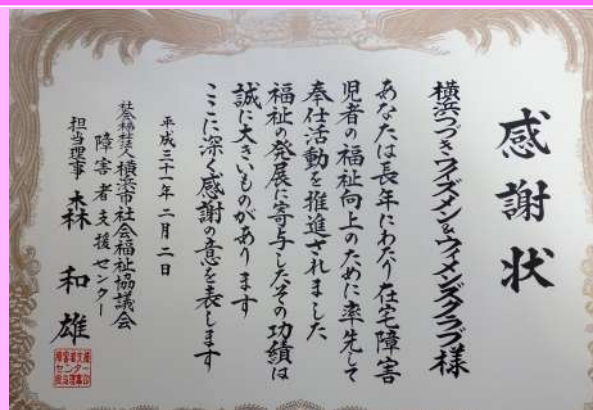 感謝状
横浜つづきワイズメン&ウィメンズクラブ様
あなたは長年にわたり在宅障害
児者の福祉向上のために率先して
奉仕活動を推進されました
福祉の発展に寄与したその功績は
誠に大きいものがあります
ここに深く感謝の意を表します
平成三十一年二月二日
社会福祉法人横浜市社会福祉協議会
障害者支援センター
担当理事 森 和雄